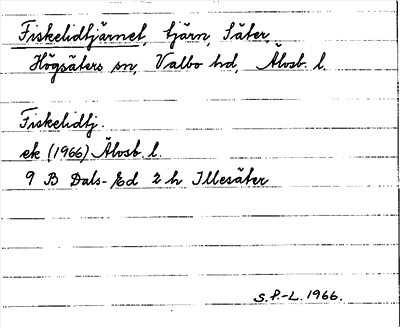 Fiskelidtjärnet, tjärn, Säter,
Högsäters sn, Valbo hd, Älvsb. l.
Fiskelidtj.
ek (1966) Älvsb. l.
9 B Dals-Ed 2 h Illesäter
S.P.-L. 1966.